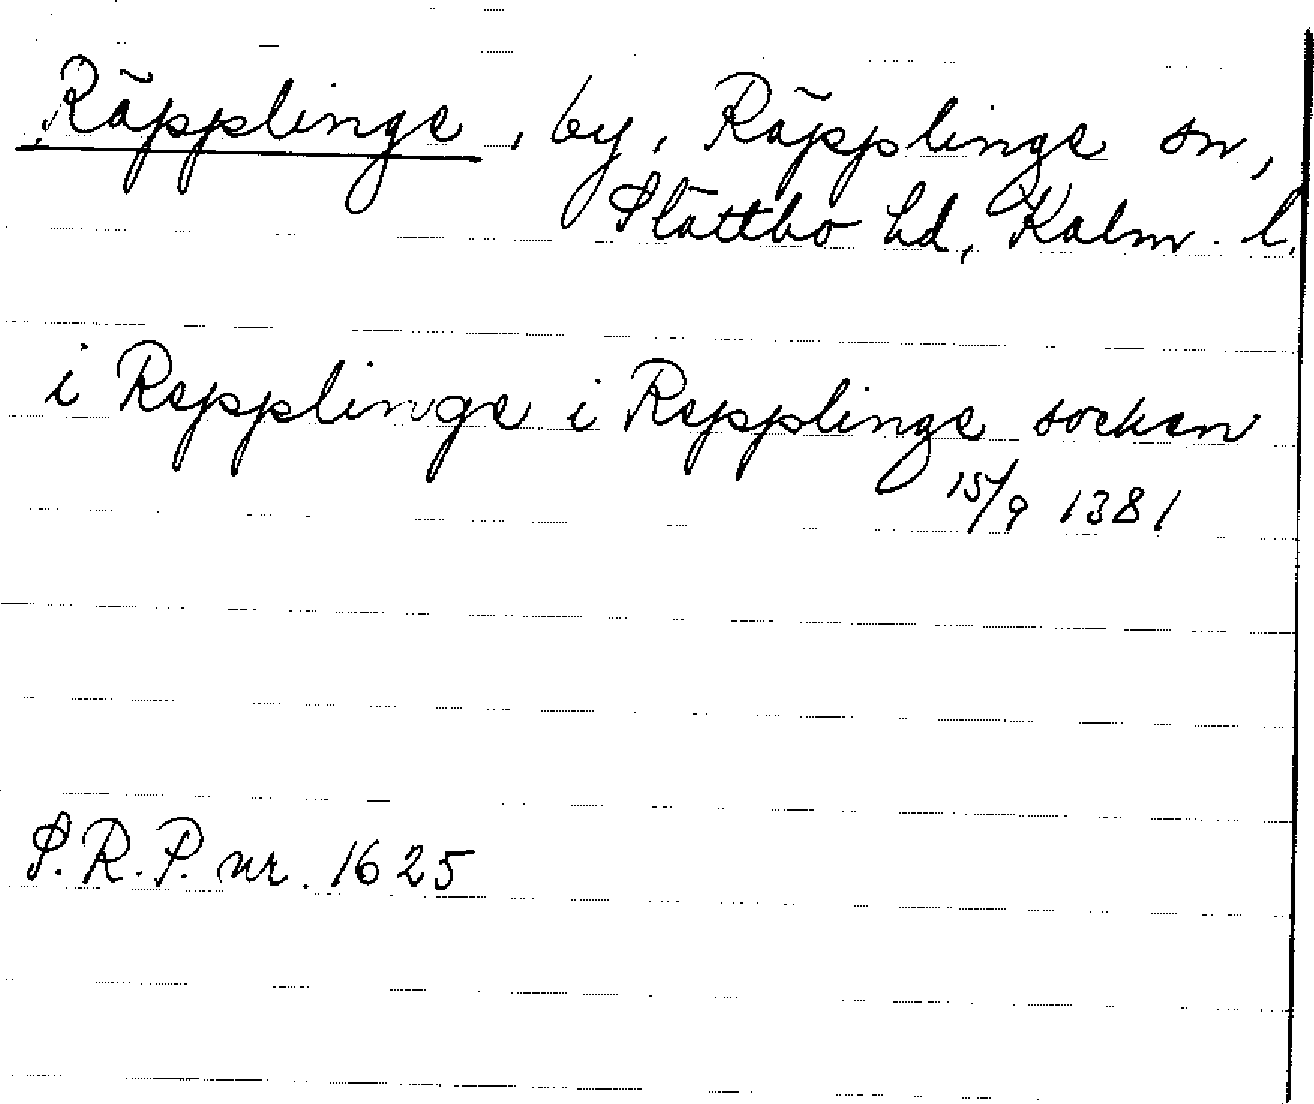 Räpplinge, by, Räpplinge sn,
Slättbo hd, Kalm. l.
i Repplinge i Repplinge socken
15/9 1381
S.R.P. nr. 1625